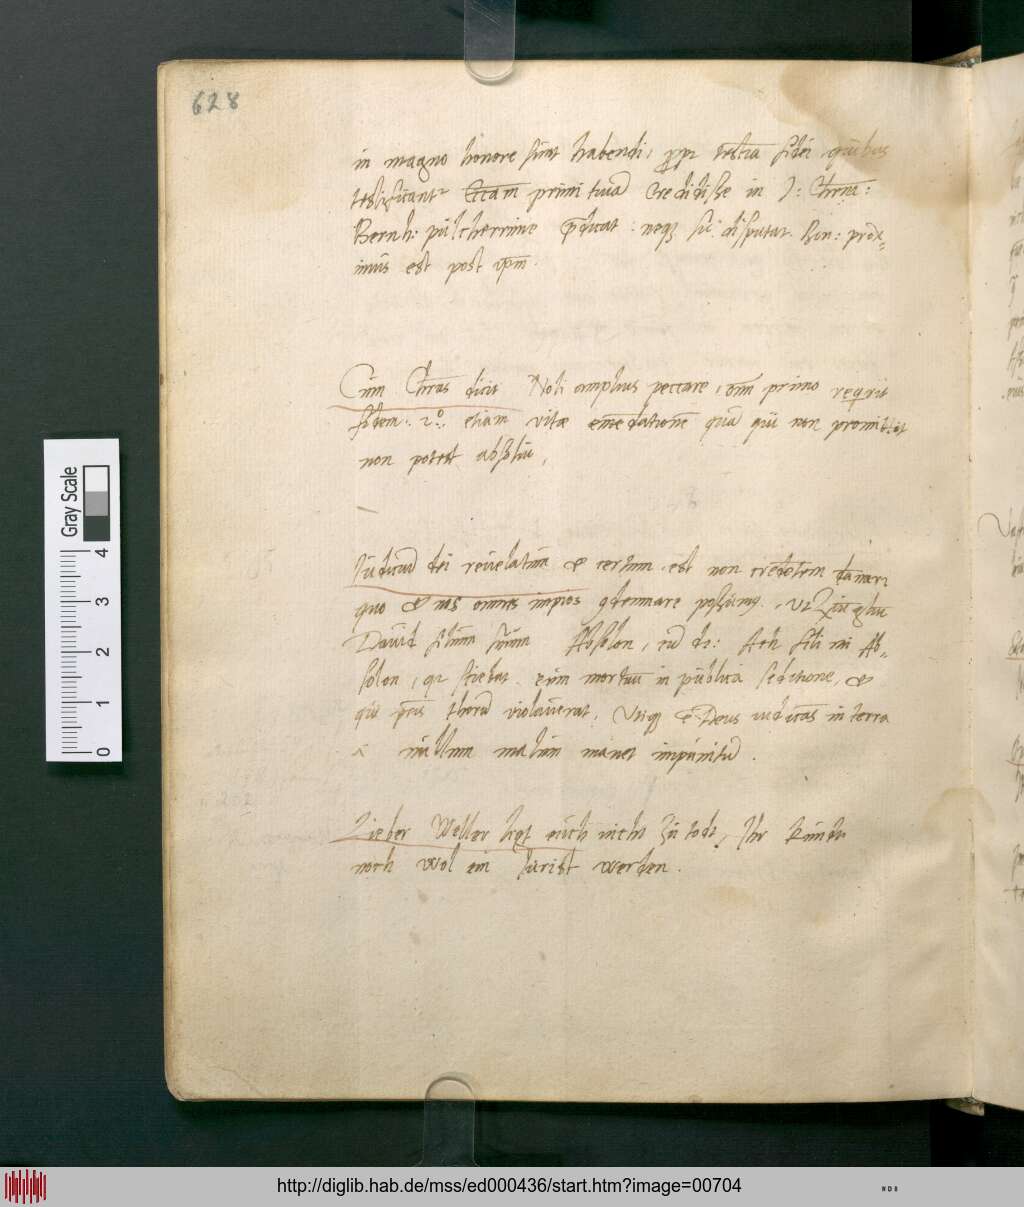 628
in magno honore sunt habendi, propter testia fidei, quibus
testificantr Ecciam primitiuā credidisse in J: Chrm:
Bernh: pulcherrime pdicat: neqz sic disputat. Hin: prox-
imus est post ipm.
Cum Chrus dicit Noli amplius peccare, oīm primo reqrit
fidem: 2º: etiam vitæ emēdationē quā qui non promittit
non potest absolui,
Iudiciū dei reuelatum & certum, est non credētem dānari
quo & nos omnes impios 9demnare possumus, Vt
Dauid filium suum Absolon, cū dt: Ach fili mi Ab-
solon, qr sciebat eum mortuū in publica seditione, &
qui pris thorū violauerat, Vtiqz ē Deus iudicās in terra
nullum malum manet impunitū.
Lieber Weller hat euch nicht zu todt, Ihr kundt
noch wol ein Jurist werden.
Gray Scale
0 1 2 3 4
http://diglib.hab.de/mss/ed000436/start.htm?image=00704